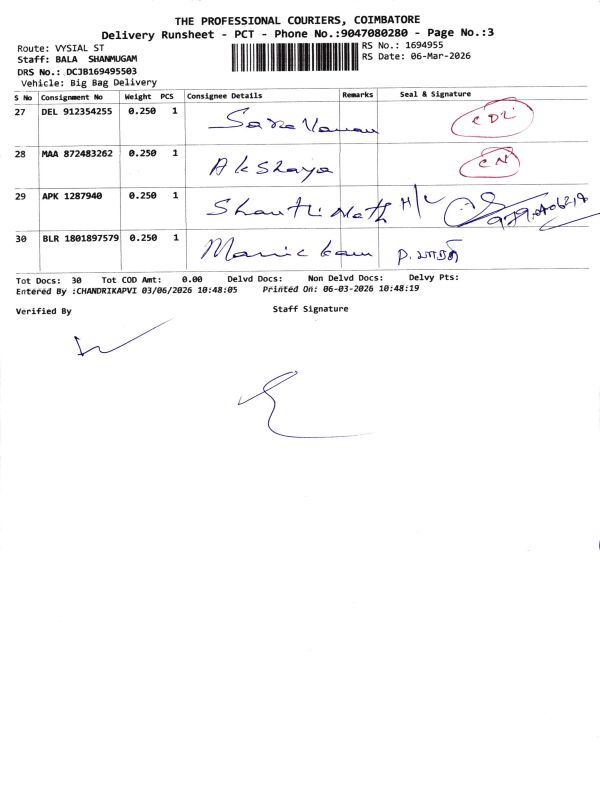 THE PROFESSIONAL COURIERS, COIMBATORE
Delivery Runsheet - PCT - Phone No.:9047080280 - Page No.:3
Route: VYSIAL ST
RS No.: 1694955
Staff: BALA SHANMUGAM
RS Date: 06-Mar-2026
DRS No.: DCJB169495503
Vehicle: Big Bag Delivery
S No Consignment No Weight PCS Consignee Details Remarks Seal & Signature
27 DEL 912354255 0.250 1 Saravanan
28 MAA 872483262 0.250 1 Akshaya CN
29 APK 1287940 0.250 1 Shanthi Nath H/L
30 BLR 1801897579 0.250 1 Manickam P.
Tot Docs: 30 Tot COD Amt: 0.00 Delvd Docs: Non Delvd Docs: Delvy Pts:
Entered By :CHANDRIKAPVI 03/06/2026 10:48:05 Printed On: 06-03-2026 10:48:19
Verified By Staff Signature